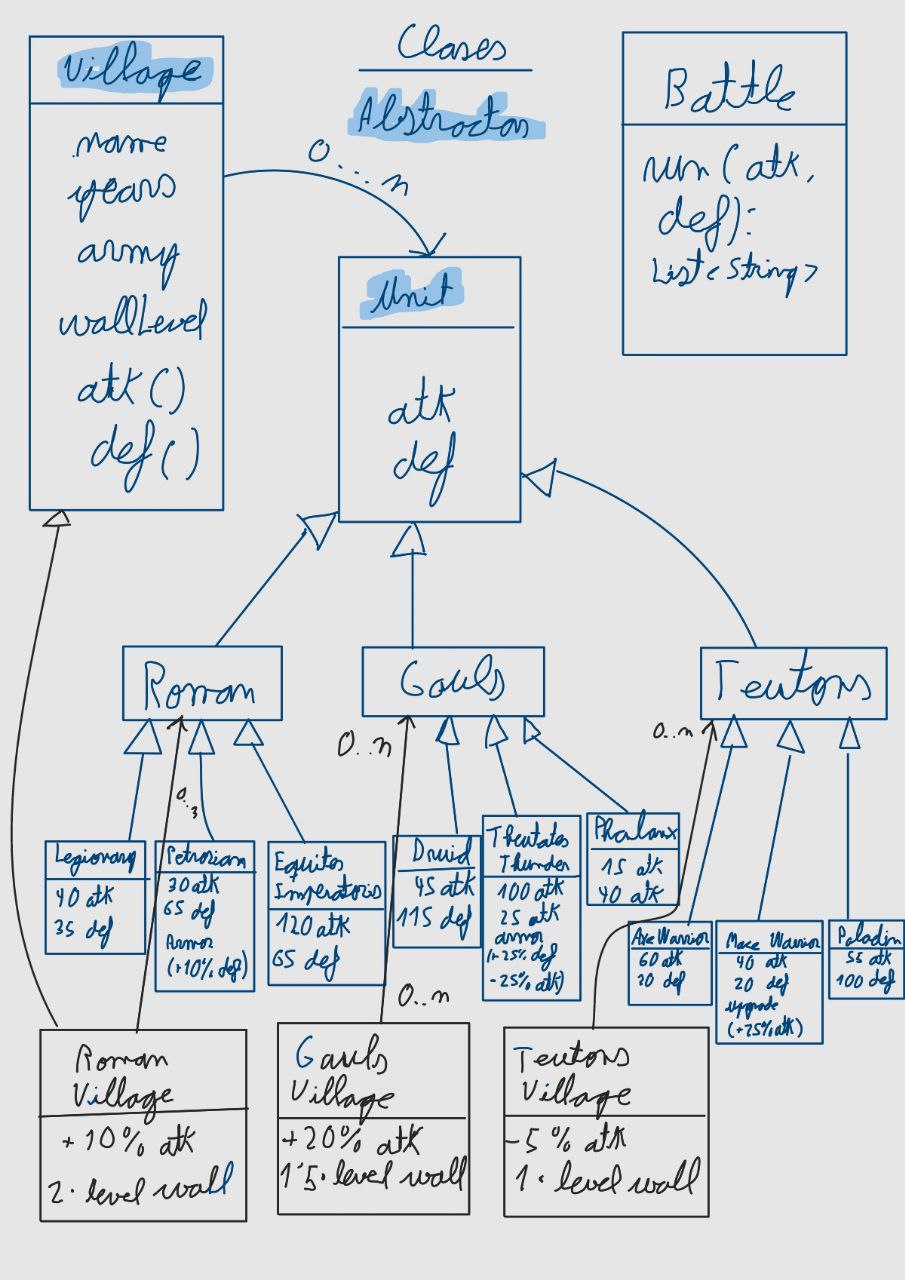 Clases
Abstractas
Village
name
years
army
wallLevel
atk()
def()
0...n
Battle
run(atk,
def):
List<String>
Unit
atk
def
Roman
Gauls
Teutons
0..3
0..n
0..n
Legionary
40 atk
35 def
Petrorian
30 atk
65 def
Armor
(+10% def)
Equites
Imperatoris
120 atk
65 def
Druid
45 atk
115 def
Theutates
Thunder
100 atk
25 atk
armor
(+25% def
-25% atk)
Phalanx
15 atk
40 atk
Axe Warrior
60 atk
30 def
Mace Warrior
40 atk
20 def
upgrade
(+25% atk)
Paladin
55 atk
100 def
0..n
Roman
Village
+10% atk
2·level wall
Gauls
Village
+20% atk
1'5·level wall
Teutons
Village
-5% atk
1·level wall